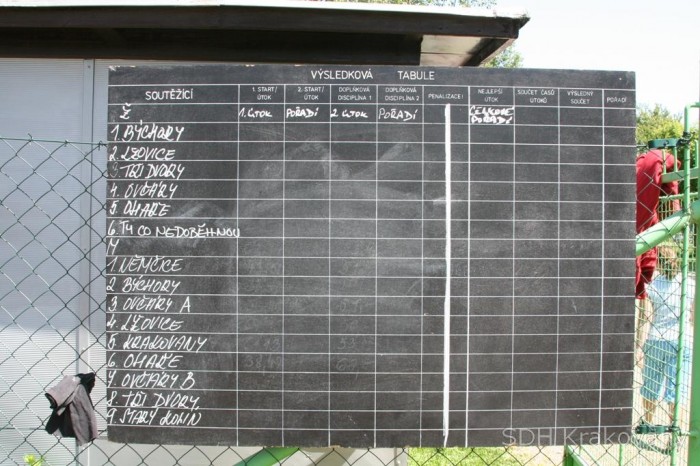 VÝSLEDKOVÁ TABULE
SOUTĚŽÍCÍ 1. START/ÚTOK 2. START/ÚTOK DOPLŇKOVÁ DISCIPLÍNA 1 DOPLŇKOVÁ DISCIPLÍNA 2 PENALIZACE NEJLEPŠÍ ÚTOK SOUČET ČASŮ ÚTOKŮ VÝSLEDNÝ SOUČET POŘADÍ
Ž 1. ÚTOK POŘADÍ 2 ÚTOK POŘADÍ CELKOVÉ POŘADÍ
1. BÝCHORY
2. LŽOVICE
3. TŘI DVORY
4. OVČÁRY
5. OHAŘE
6. TY CO NEDOBĚHNOU
M
1. NĚMČICE
2 BÝCHORY
3 OVČÁRY A
4. LŽOVICE
5. KRAKOVANY
6. OHAŘE
7. OVČÁRY B
8. TŘI DVORY
9. STARÝ KOLÍN
SDH Krakovany